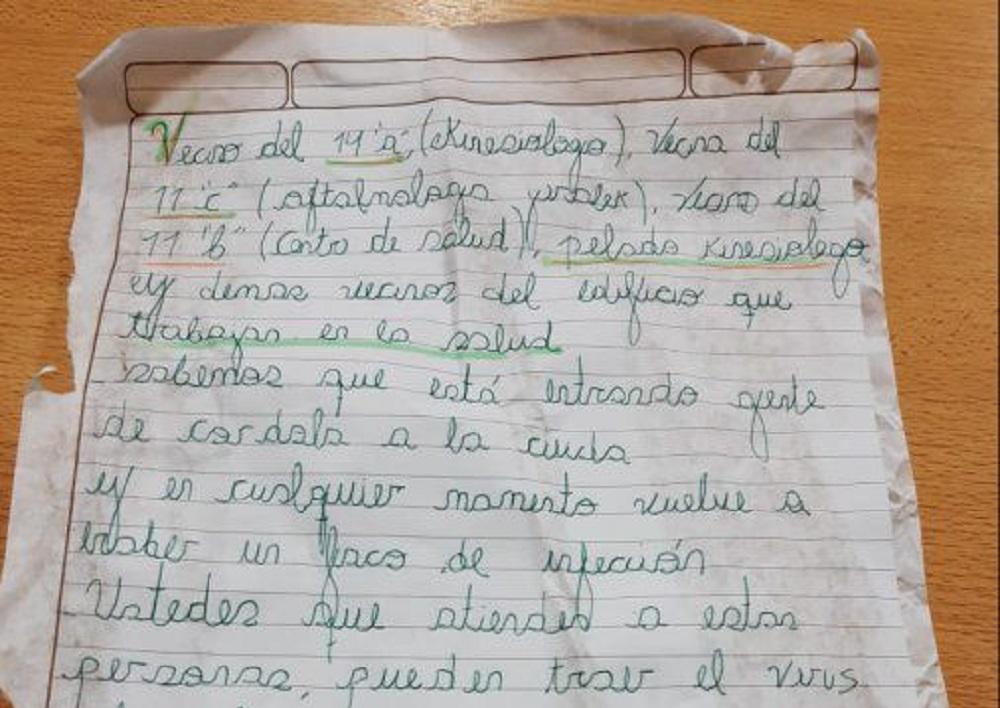 Vecino del 11 "a", (Kinesiologo), Vecina del
11 "c" (oftalmologa             ), vecino del
11 "b" (Cento de salud), pelado kinesiologo
y demas vecinos del edificio que
trabajan en la salud
sabemos que está entrando gente
de cordoba a la
y en cualquier momento vuelve a
haber un foco de infección
Ustedes que atienden a estas
personas, pueden traer el virus